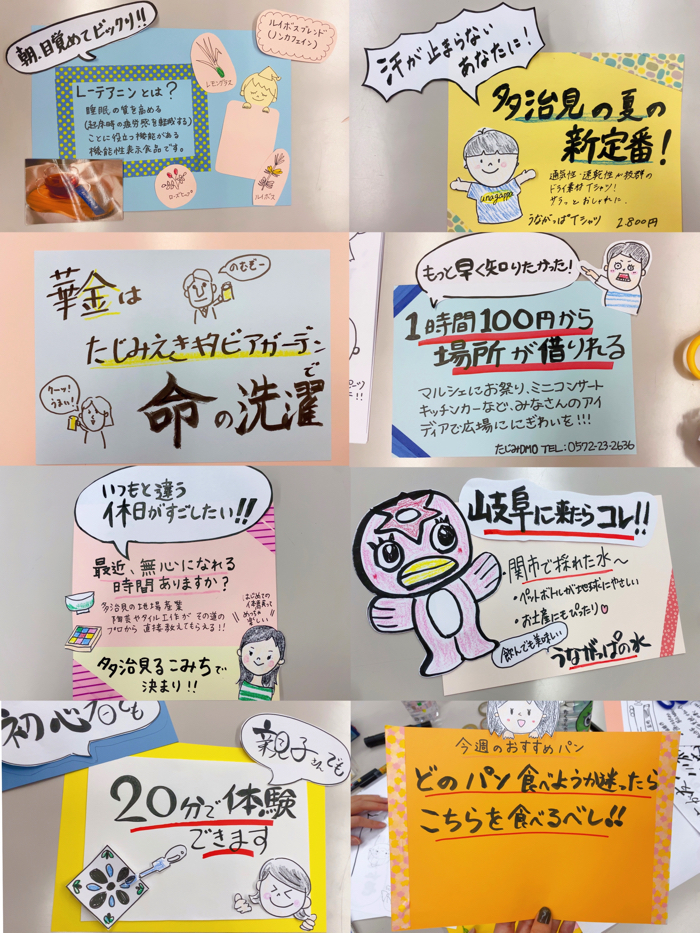 朝、目覚めてビックリ!!
ルイボスブレンド
(ノンカフェイン)
レモングラス
L-テアニンとは?
睡眠の質を高める
(起床時の疲労感を軽減する)
ことに役立つ機能がある
機能性表示食品です。
ローズヒップ
ルイボス
汗が止まらない
あなたに!
多治見の夏の
新定番!
通気性・速乾性が抜群の
ドライ素材Tシャツ!
サラッとおしゃれに。
unagappa
うながっぱTシャツ 2,800円
華金は
のむぞー
たじみえきキタビアガーデン
で
クーッ!
うまい!
命の洗濯
もっと早く知りたかった!
1時間100円から
場所が借りれる
マルシェにお祭り、ミニコンサート
キッチンカーなど、みなさんのアイ
ディアで広場ににぎわいを!!!
たじみDMO TEL:0572-23-2636
いつもと違う
休日がすごしたい!!
最近、無心になれる
時間ありますか?
多治見の地場産業
陶芸やタイル工作が その道の
プロから 直接教えてもらえる!!
はじめての
体験って
めっちゃ
楽しい
多治見るこみちで
決まり!!
岐阜に来たらコレ!!
・関市で採れた水〜
・ペットボトルが地球にやさしい
・お土産にもぴったり♡
飲んでも美味しい
うながっぱの水
初心者でも
親子さんでも
20分で体験
できます
今週のおすすめパン
どのパン食べようか迷ったら
こちらを食べるベし!!